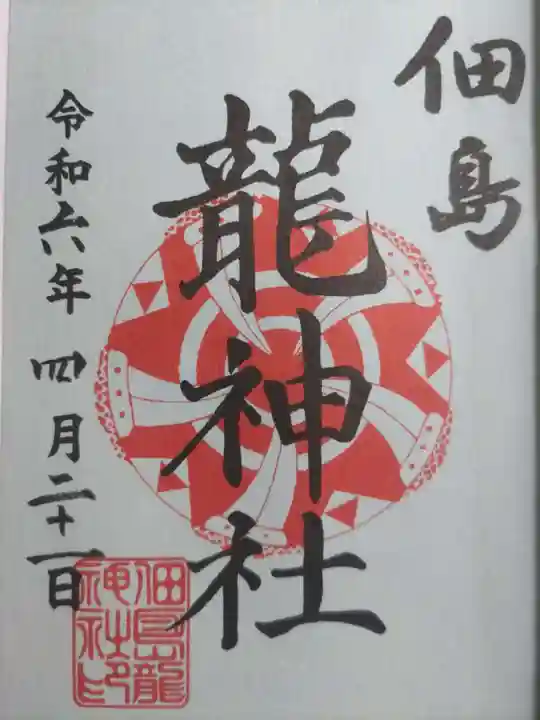 佃島
龍神社
令和六年 四月二十一日
佃島龍
神社印